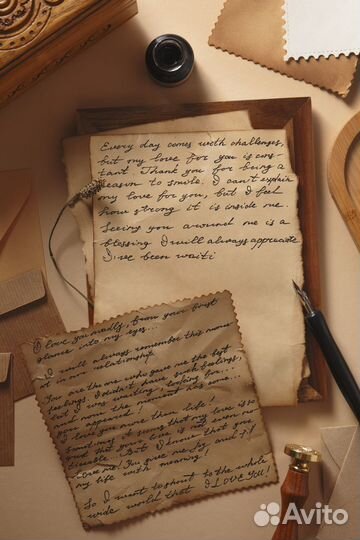 Every day comes with challenges,
but my love for you is cons-
tant. Thank you for being a
reason to smile. I can't explain
my love for you, but I feel
how strong it is inside me.
Seeing you around me is a
blessing. I will always appreciate
I've been waiti
I love you madly, from your first
glance into my eyes...
I will always remember this mome
nt in our relationship.
You are the one who gave me the gift
feelings. I didn't have such feelings,
but I was waiting, looking for...
and now the moment has come...
you appeared!
I love you more than life!
Sometimes it seems that my love is so
that your love is not even no
ticeable. But I know that you
love me! You give me joy and fill
my life with meaning!
So I want to shout to the whole
wide world that I LOVE YOU!
Avito